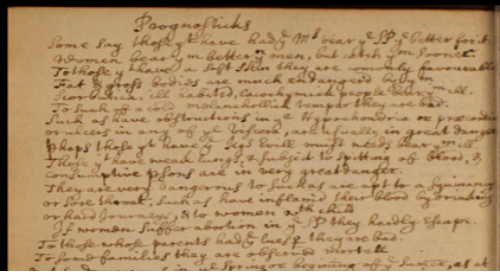 Prognosticks
Some say those yt have had ye Ms bear ye SP ye better for it
Women bear ym better yn men, but catch ym sooner
To those yt have a soft skin they are comonly favourable
Fat & gross bodies are much endangerd by ym
Scorbutical ill habited, Cacochymick people bear ym ill.
To such of a cold melancholick temper they are bad.
Such as have obstructions in ye Hypochondria or præcordia
or ulcers in any of ye Viscera, are usually in great danger
phaps those yt have ye Kgs Evill must needs bear ym ill.
Those yt have weak Lungs, & subject to spitting of blood, &
consumptive psons are in very great danger.
They are very dangerous to such as are apt to a Squinancy
or sore throat, such as have inflamd their blood by drinking
or hard Journeys, & to women wth child
If women suffer abortion in ye SP they hardly escape.
To those whose parents had ye lues they are bad.
To some families they are observed mortall
in ye Spring or begining of ye Sumer, as at